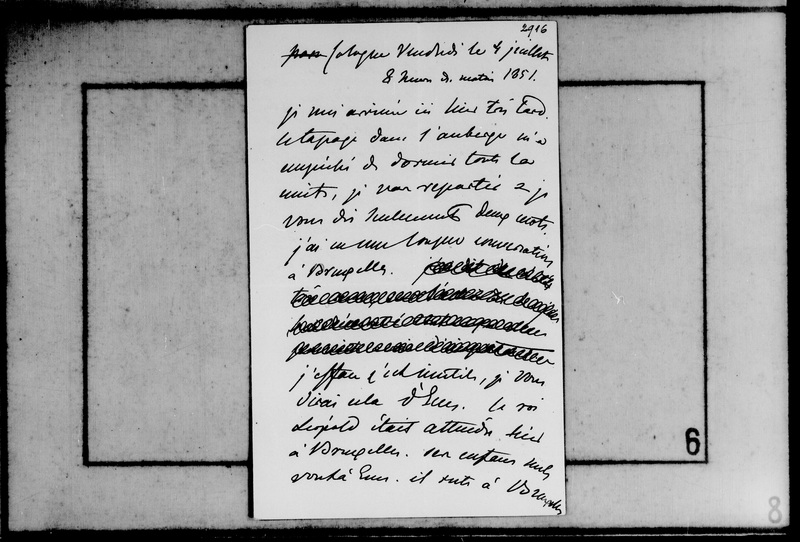 2916
Cologne Vendredi le 4 juillet
8 heures du matin 1851.
je suis arrivée ici hier très tard.
le tapage dans l'auberge m'a
empêché de dormir toute la
nuit, je vais repartir & je
vous dis seulement deux mots.
j'ai eu une longue conversation
à Bruxelles.
j'efface c'est inutile, je vous
dirai cela d'Ems. le roi
Léopold était attendu hier
à Bruxelles. ses enfans seuls
vont à Ems. il reste à Bruxelles
6
8